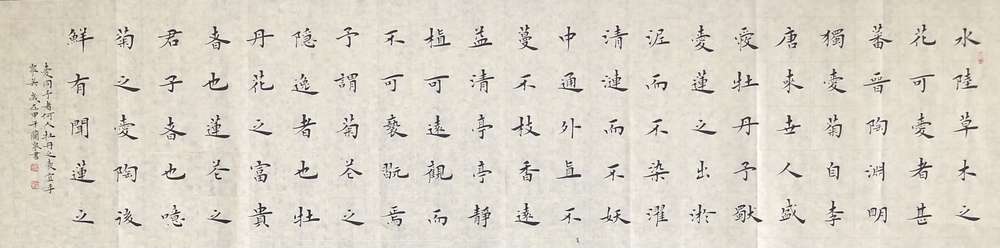 水陸草木之
花可愛者甚
蕃晉陶淵明
獨愛菊自李
唐來世人盛
愛牡丹予獨
愛蓮之出淤
泥而不染濯
清漣而不妖
中通外直不
蔓不枝香遠
益清亭亭靜
植可遠觀而
不可褻翫焉
予謂菊花之
隐逸者也牡
丹花之富貴
者也蓮花之
君子者也噫
菊之愛陶後
鮮有聞蓮之
愛同予者何人牡丹之愛宜乎
眾矣 歲在甲午蘭泉書